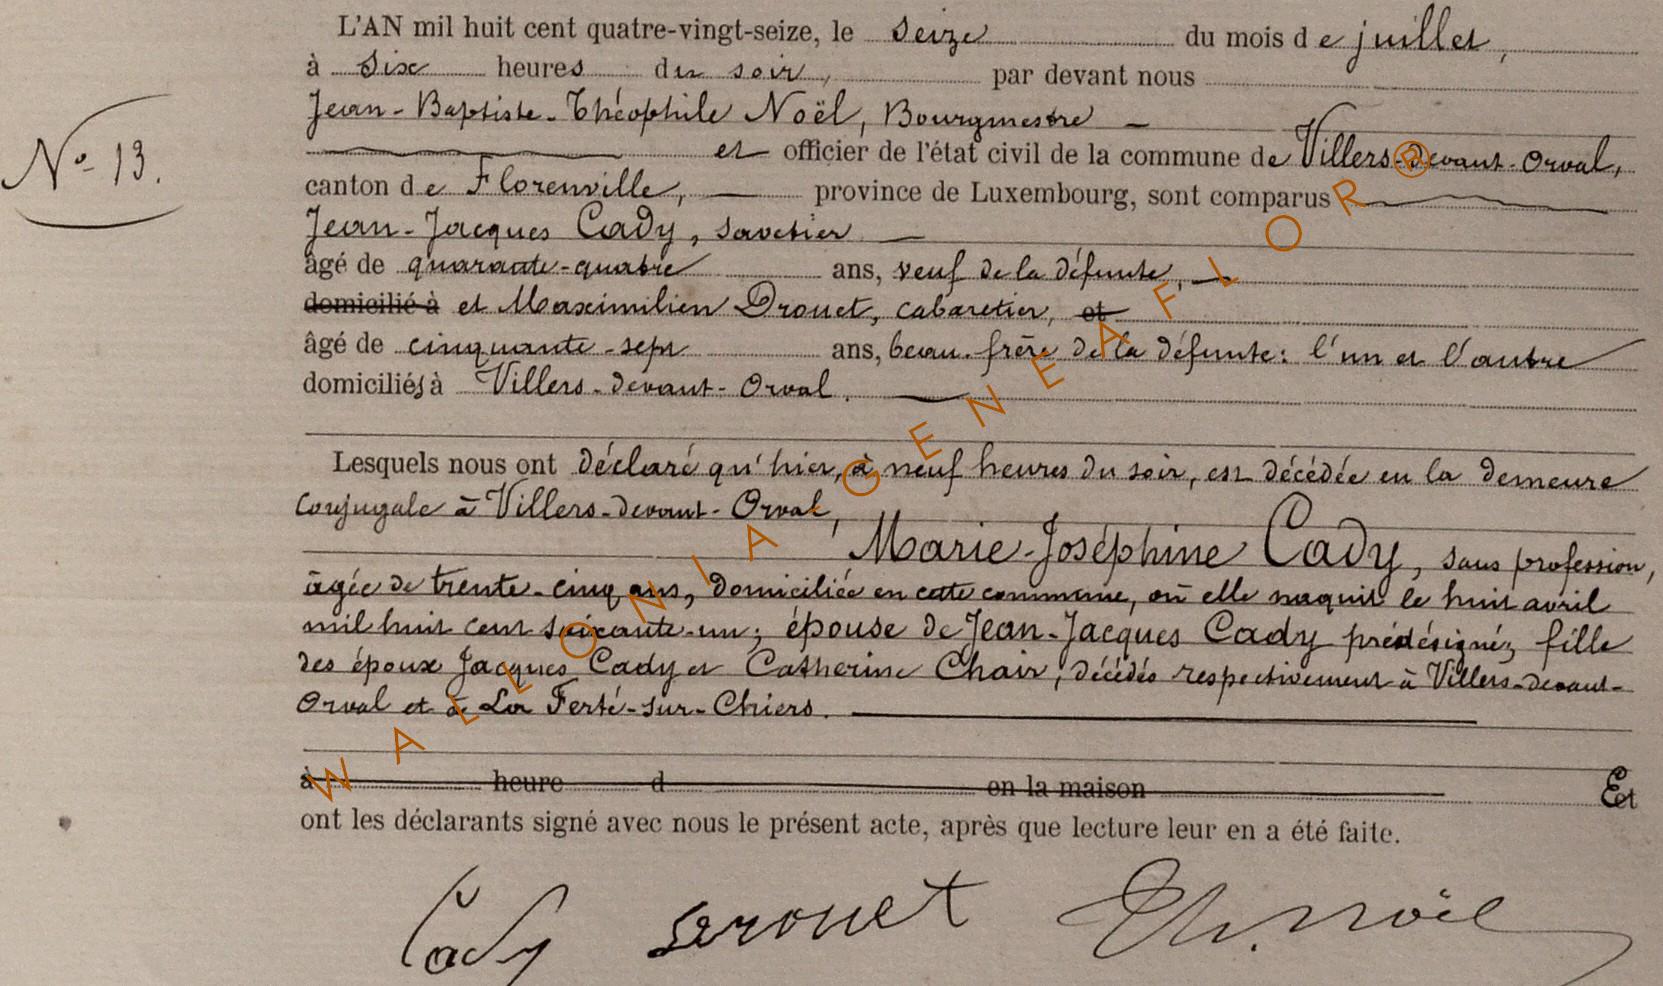 L'AN mil huit cent quatre-vingt-seize, le seize du mois de juillet,
à six heures du soir, par devant nous
Jean-Baptiste-Théophile Noël, Bourgmestre
et officier de l'état civil de la commune de Villers-devant-Orval,
N° 13.
canton de Florenville, province de Luxembourg, sont comparus
Jean-Jacques Cady, savetier
âgé de quarante-quatre ans, veuf de la défunte,
domicilié à et Maximilien Drouet, cabaretier, et
âgé de cinquante-sept ans, beau-frère de la défunte: l'un et l'autre
domiciliés à Villers-devant-Orval.
Lesquels nous ont déclaré qu'hier, à neuf heures du soir, est décédée en la demeure
conjugale à Villers-devant-Orval,
Marie-Joséphine Cady, sans profession,
âgée de trente-cinq ans, domiciliée en cette commune, où elle naquit le huit avril
mil huit cent soixante-un; épouse de Jean-Jacques Cady prédésigné; fille
des époux Jacques Cady et Catherine Chair, décédés respectivement à Villers-devant-
Orval et à La Ferté-sur-Chiers.
à heure d en la maison Et
ont les déclarants signé avec nous le présent acte, après que lecture leur en a été faite.
Cady Drouet Th. Noël
WALLONIA GENEAFLOR®